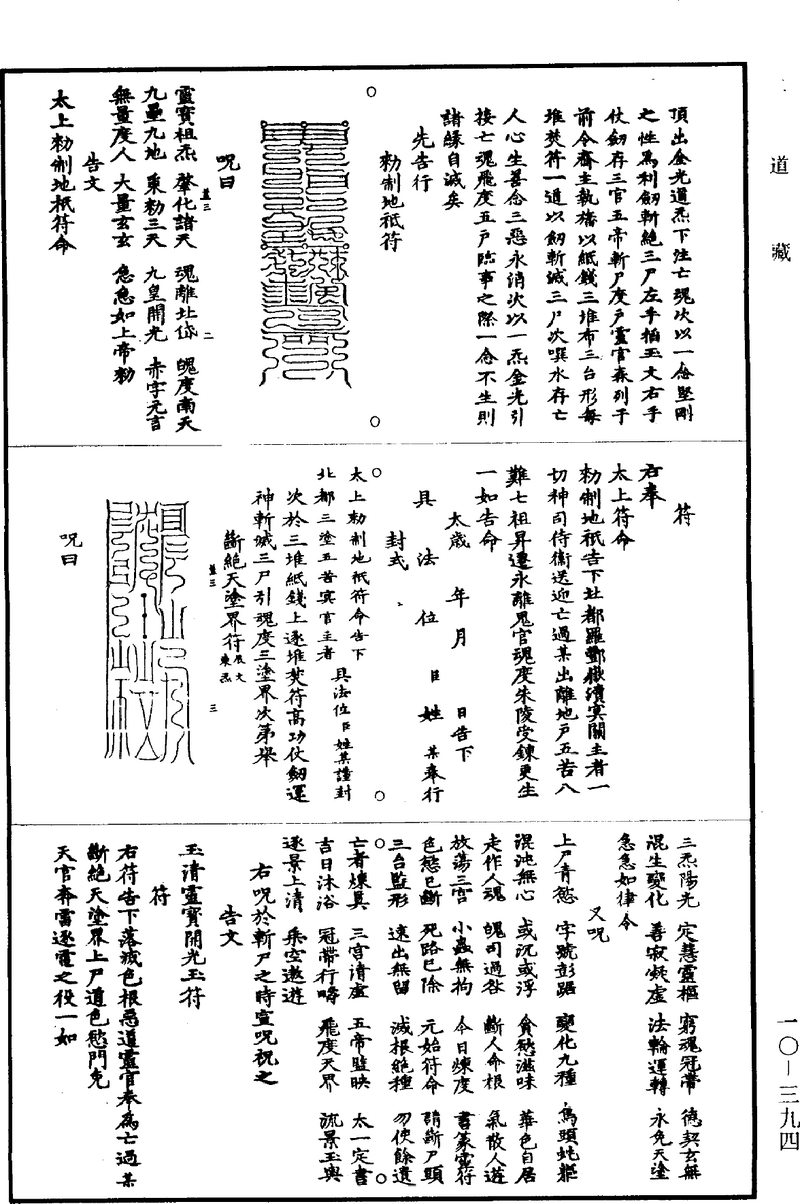 道藏
頂出金光道炁下注亡魂次以一念堅剛
之性爲利劒斬絶三尸左手掐玉文右手
仗劒存三官五帝斬尸度戶靈官森列于
前令齋主執旛以紙錢三堆布三台形每
堆焚符一道以劒斬滅三尸次噀水存亡
人心生善念三惡永消次以一炁金光引
接亡魂飛度五戶臨事之際一念不生則
諸緣自滅矣
先告行
勑制地祇符
呪曰
靈寶祖炁 肇化諸天 魂離北岱 魄度南天
九壘九地 秉勑三天 九皇開光 赤字元吉
無量度人 大量玄玄 急急如上帝勑
告文
太上勑制地祇符命
符
右奉
太上符命
勑制地祇告下北都羅酆嶽瀆冥關主者一
切神司侍衞送迎亡過某出離地戶五苦八
難七祖昇遷永離鬼官魂度朱陵受鍊更生
一如告命
太歲 年 月 日告下
具法位 臣姓某奉行
封式
太上勑制地祇符命告下
北都三塗五苦冥官主者 具法位臣姓某謹封
次於三堆紙錢上逐堆焚符高功仗劒運
神斬滅三尸引魂度三塗界次第舉
斷絶天塗界符
呪曰
三炁陽光 定慧靈樞 窮魂冠帶 德契玄無
混生變化 善寂凝虛 法輪運轉 永免天塗
急急如律令
又呪
上尸青慾 字號彭踞 變化九種 鳥頭蛇軀
混沌無心 或沉或浮 貪愁滋味 華色自居
走作人魂 魄司過咎 斷人命根 氣散人遊
放蕩三宮 小蟲無拘 今日煉度 書篆靈符
色慾已斷 死路已除 元始符命 請斷尸頭
三台監形 速出無留 滅根絶種 勿使餘遺
亡者煉真 三宮清虛 五帝監映 太一定書
吉日沐浴 冠帶行疇 飛度天界 流景玉輿
逐景上清 乘空遨遊
右呪於斬尸之時宣呪祝之
告文
玉清靈寶開光玉符
符
右符告下落滅色根惡道靈官奉為亡過某
斷絶天塗界上尸道色慾門免
天官奔雷逐電之役一如
一〇—三九四